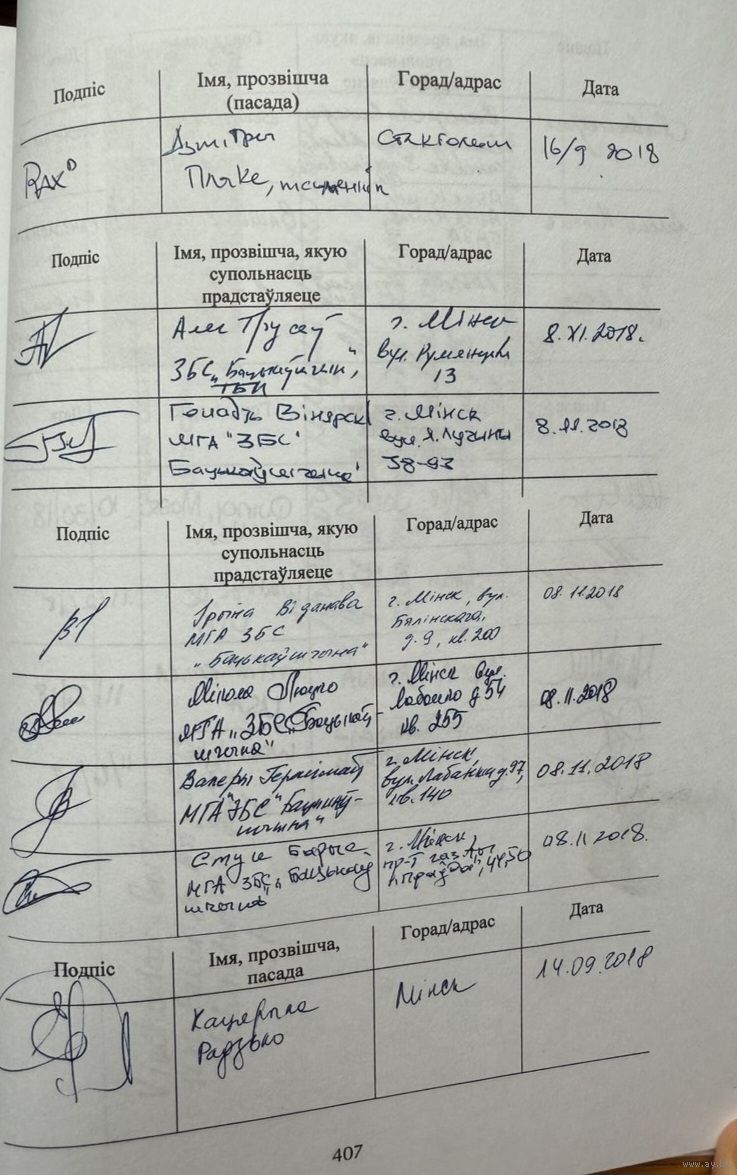 Подпіс Імя, прозвішча Горад/адрас Дата
(пасада)
Дзмітры Стакгольм 16/9 2018
Пляке,
Подпіс Імя, прозвішча, якую Горад/адрас Дата
супольнасць
прадстаўляеце
Алег Трусаў г. Мінск 8.XI.2018.
ЗБС „Бацькаўшчын", вул. 13
ТБМ
Вінярскі г. Мінск 8.11.2018
МГА "ЗБС" вул. Я. Лучыны
Бацькаўшчына"
Подпіс Імя, прозвішча, якую Горад/адрас Дата
супольнасць
прадстаўляеце
Ірына Віданава г. Мінск, вул. 08.11.2018
МГА ЗБС Бялінскага,
„Бацькаўшчына" д. 9, кв. 200
Мікола г. Мінск вул. 08.11.2018
МГА „ЗБС „Бацькаў- д 54
шчына" кв. 255
Валеры Герасімаў г. Мінск, 08.11.2018
МГА "ЗБС" Бацькаў- вул. Лабанка д. 97,
шчына" кв. 140
Барыс г. Мінск, 08.11.2018.
МГА ЗБС „Бацькаў пр-т газеты
шчына" „Праўда",
Подпіс Імя, прозвішча, Горад/адрас Дата
пасада
Кацярына Мінск 14.09.2018
Радзько
407